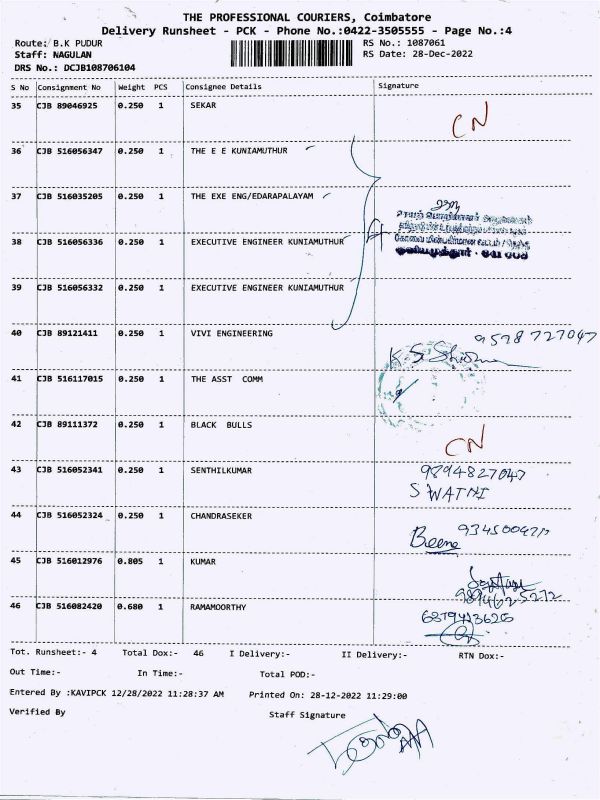 THE PROFESSIONAL COURIERS, Coimbatore
Delivery Runsheet - PCK - Phone No.:0422-3505555 - Page No.:4
Route: B.K PUDUR RS No.: 1087061
Staff: NAGULAN RS Date: 28-Dec-2022
DRS No.: DCJB108706104
S No Consignment No Weight PCS Consignee Details Signature
35 CJB 89046925 0.250 1 SEKAR
CN
36 CJB 516056347 0.250 1 THE E E KUNIAMUTHUR
37 CJB 516035205 0.250 1 THE EXE ENG/EDARAPALAYAM
38 CJB 516056336 0.250 1 EXECUTIVE ENGINEER KUNIAMUTHUR
39 CJB 516056332 0.250 1 EXECUTIVE ENGINEER KUNIAMUTHUR
40 CJB 89121411 0.250 1 VIVI ENGINEERING 9578 727047
41 CJB 516117015 0.250 1 THE ASST COMM
42 CJB 89111372 0.250 1 BLACK BULLS
CN
43 CJB 516052341 0.250 1 SENTHILKUMAR 9894827047
SWATHI
44 CJB 516052324 0.250 1 CHANDRASEKER
45 CJB 516012976 0.805 1 KUMAR
46 CJB 516082420 0.680 1 RAMAMOORTHY
Tot. Runsheet:- 4 Total Dox:- 46 I Delivery:- II Delivery:- RTN Dox:-
Out Time:- In Time:- Total POD:-
Entered By :KAVIPCK 12/28/2022 11:28:37 AM Printed On: 28-12-2022 11:29:00
Verified By Staff Signature